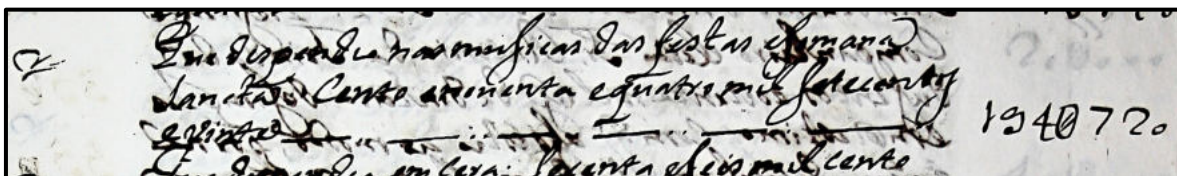 Que despendeu nas musicas das festas e somana
sancta Cento e noventa e quatro mil setecentos
e vinte 194 0720
Que despendeu em cera sesenta e seis mil cento